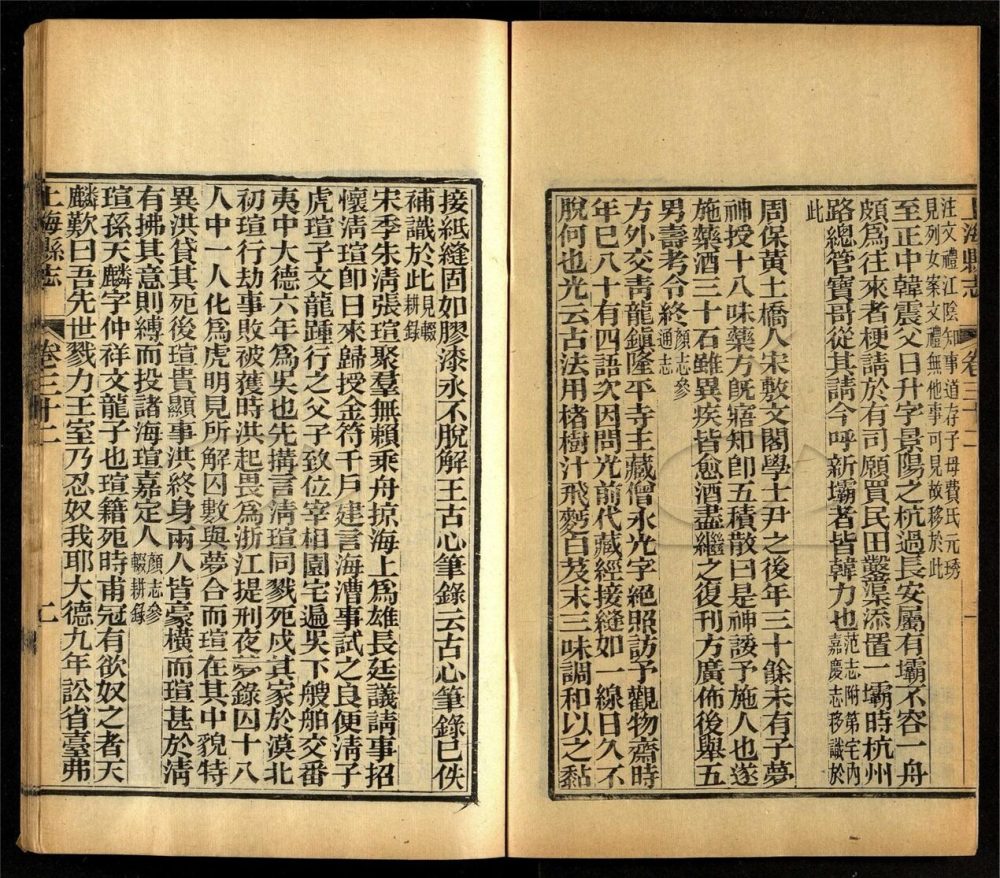 上海縣志 卷三十二 一
注文禮江陰知事道存子母費氏元琇
見列女案文禮無他事可見故移於此
至正中韓震父日升字景陽之杭過長安屬有壩不容一舟
頗爲往來者梗請於有司願買民田鑿渠添置一壩時杭州
路總管寶哥從其請今呼新壩者皆韓力也范志附第宅內嘉慶志移識於
此
周保黃土橋人宋敷文閣學士尹之後年三十餘未有子夢
神授十八味藥方旣寤知卽五積散曰是神誘予施人也遂
施藥酒三十石雖異疾皆愈酒盡繼之復刊方廣佈後舉五
男壽考令終顏志參通志
方外交靑龍鎭隆平寺主藏僧永光字絕照訪予觀物齋時
年巳八十有四語次因問光前代藏經接縫如一線日久不
脫何也光云古法用楮樹汁飛麪白芨末三味調和以之黏
接紙縫固如膠漆永不脫解王古心筆錄云古心筆錄巳佚
補識於此見輟耕錄
宋季朱淸張瑄聚羣無賴乘舟掠海上爲雄長廷議請事招
懷淸瑄卽日來歸授金符千戶建言海漕事試之良便淸子
虎瑄子文龍踵行之父子致位宰相園宅遍吳下艘舶交番
夷中大德六年爲吳也先搆言淸瑄同戮死戍其家於漠北
初瑄行劫事敗被獲時洪起畏爲浙江提刑夜夢錄囚十八
人中一人化爲虎明見所解囚數與夢合而瑄在其中貌特
異洪貸其死後瑄貴顯事洪終身兩人皆豪橫而瑄甚於淸
有拂其意則縛而投諸海瑄嘉定人顏志參輟耕錄
瑄孫天麟字仲祥文龍子也瑄籍死時甫冠有欲奴之者天
麟歎曰吾先世戮力王室乃忍奴我耶大德九年訟省臺弗
上海縣志 卷三十二 二